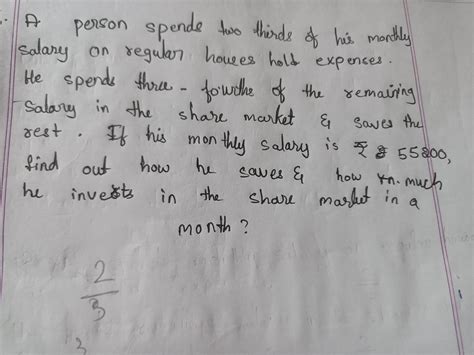 A person spends two thirds of his monthly
salary on regular houses hold expences.
He spends three-fowths of the remaining
Salary in the share market & saves the
rest. If his monthly salary is ₹ 55800,
find out how he saves & how much
he invests in the share market in a
month?
2
3
3